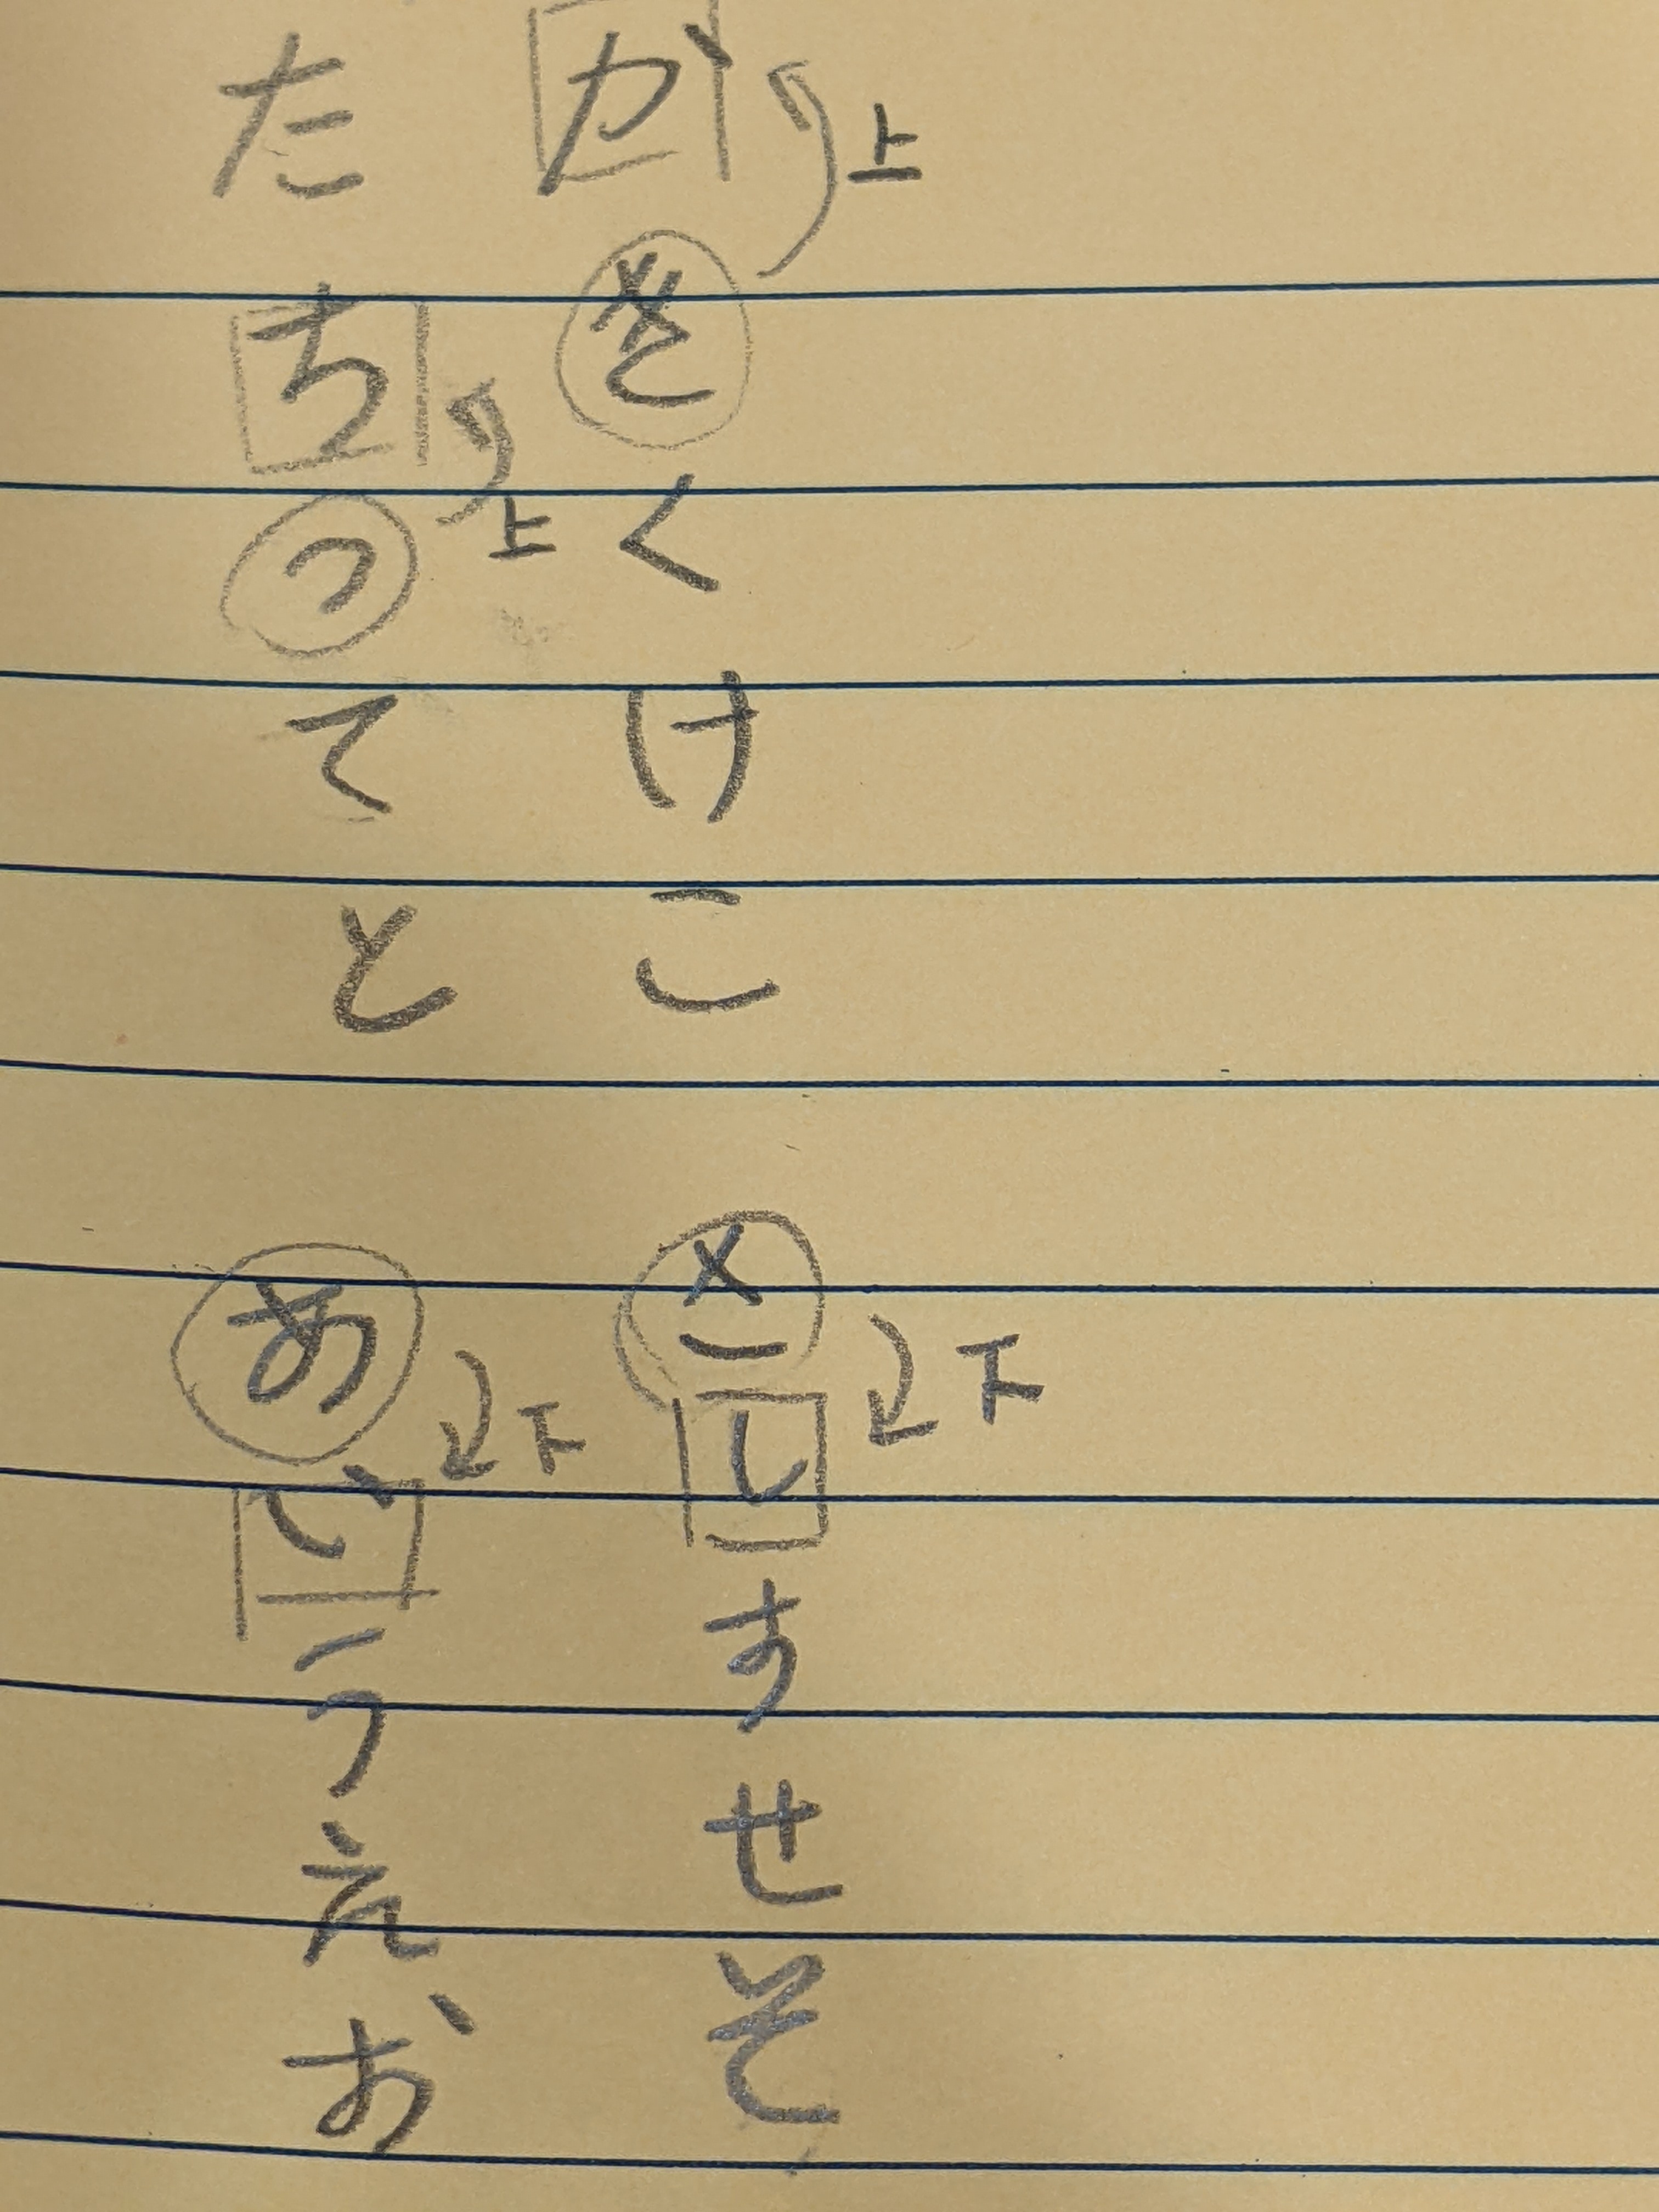 かきくけこ
上
たちつてと
上
さしすせそ
下
あいうえお
下